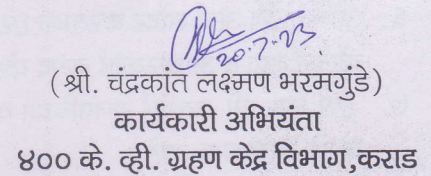 20.7.23
(श्री. चंद्रकांत लक्ष्मण भरमगुंडे)
कार्यकारी अभियंता
४०० के. व्ही. ग्रहण केंद्र विभाग,कराड